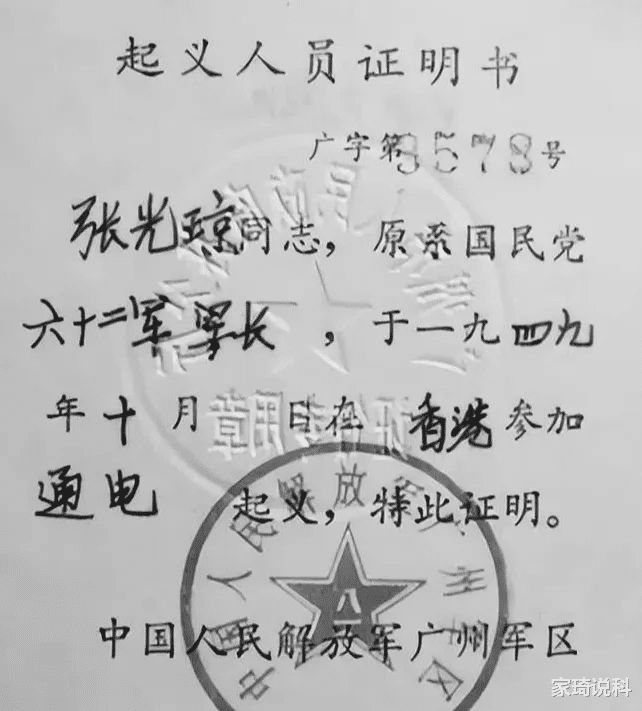 起义人员证明书
广字第8578号
张光琼同志，原系国民党
六十二军军长，于一九四九
年十月 日在香港参加
通电 起义，特此证明。
中国人民解放军广州军区
中国人民解放军广州军区
家琦说科